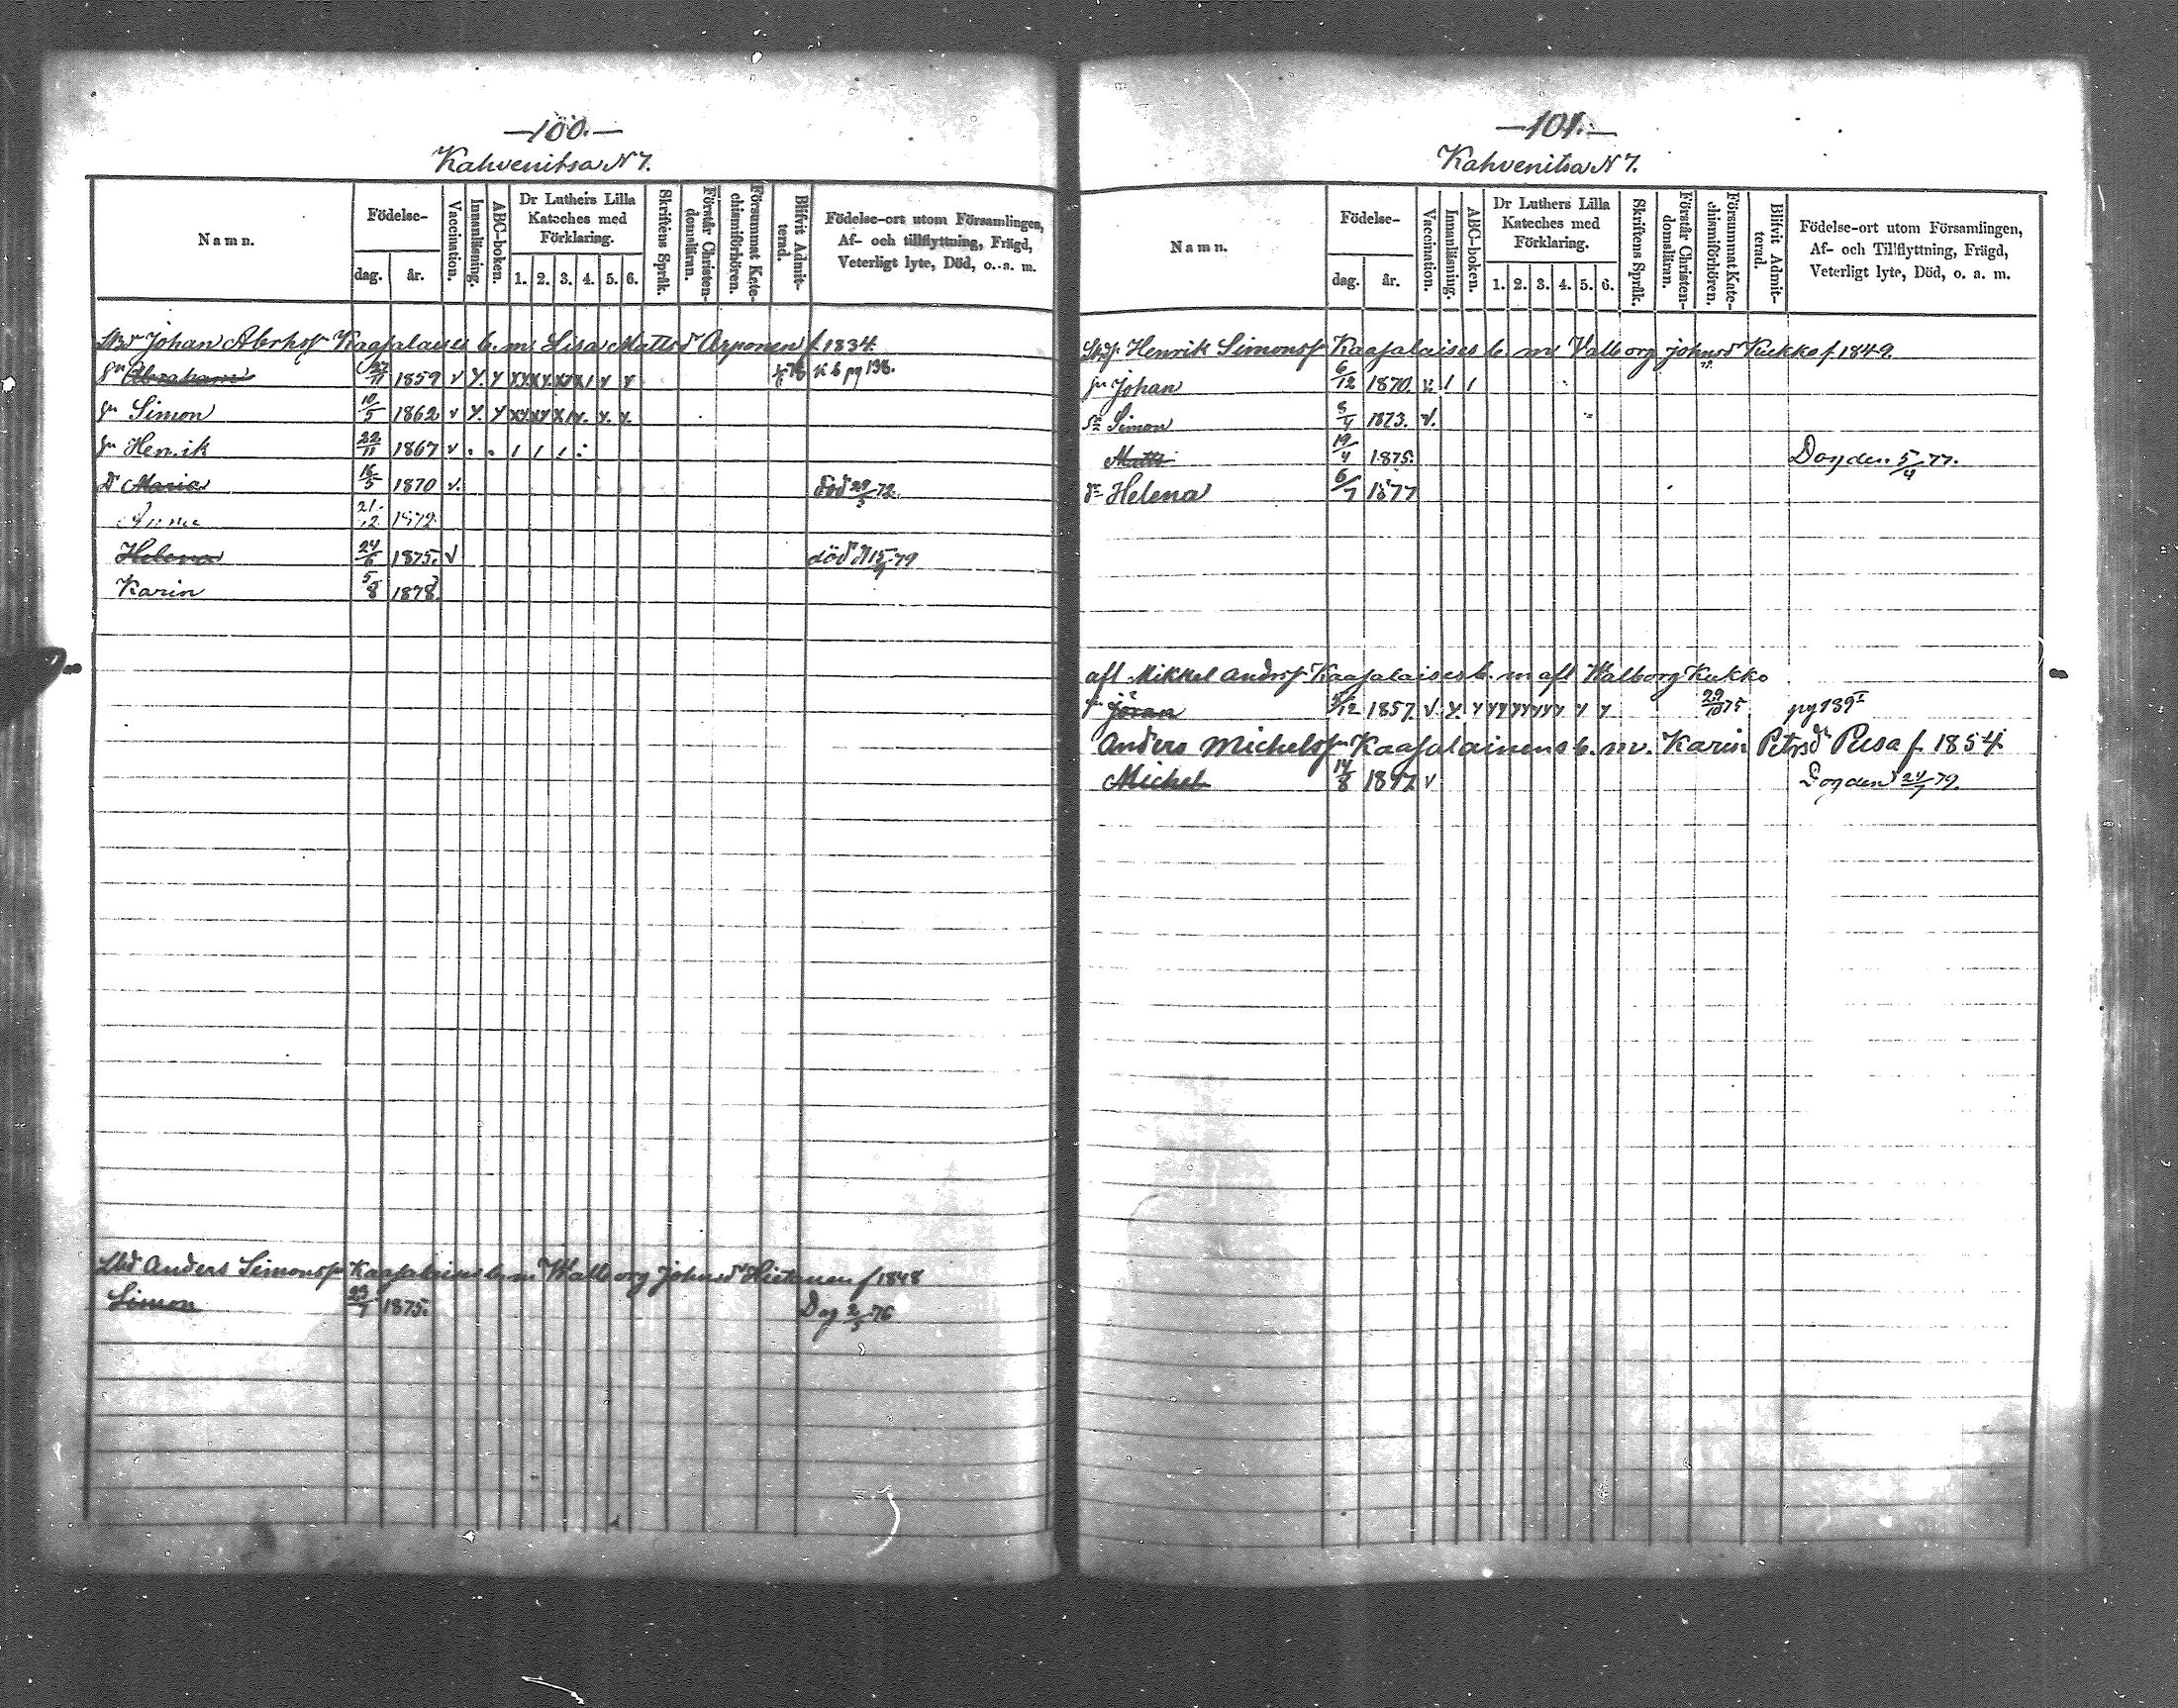 —100.—
Kahvenitsa N 7.
Namn.
Födelse-
dag.
år.
Vaccination.
Innanläsning.
ABC-boken.
Dr Luthers Lilla
Kateches med
Förklaring.
1. 2. 3. 4. 5. 6.
Skriftens Språk.
Förstår Christen-
domsläran.
Försummat Kate-
chismiförhören.
Blifvit Admit-
terad.
Födelse-ort utom Församlingen,
Af- och tillflyttning, Frägd,
Veterligt lyte, Död, o. a. m.
Johan Kaasalaises b. m. Lisa Matts d Arponen f 1834
Abraham 27/11 1859 v K b pg 138.
Simon 10/5 1862 v
Henrik 22/11 1867 v
D Maria 16/5 1870 v. död 29/5 72.
Anna 21/12 1872
Helena 24/6 1875. v död 79
Karin 5/8 1878.
Anders Simons Kaasalaises b. m Walborg Johnsd Hietanen f 1848
Simon 23/7 1875. Dog 2/5 76
—101.—
Kahvenitsa N 7.
Namn.
Födelse-
dag.
år.
Vaccination.
Innanläsning.
ABC-boken.
Dr Luthers Lilla
Kateches med
Förklaring.
1. 2. 3. 4. 5. 6.
Skriftens Språk.
Förstår Christen-
domsläran.
Försummat Kate-
chismiförhören.
Blifvit Admit-
terad.
Födelse-ort utom Församlingen,
Af- och Tillflyttning, Frägd,
Veterligt lyte, Död, o. a. m.
Henrik Simons Kaasalaises b. m Valborg Johnsd Kukko f. 1849.
Johan 6/12 1870.
Simon 1873. v.
Matts 19/4 1875. Dog den 5/4 77.
Helena 6/7 1877
afl Mikkel Kaasalaises b. m afl Walborg Kukko
Jöran 1857. v 29/10 75 pg 139
Anders Michels Kaasalainens b. m. Karin Petrsd Pusa f. 1854.
Michel 14/8 1877 v Dog den 79.